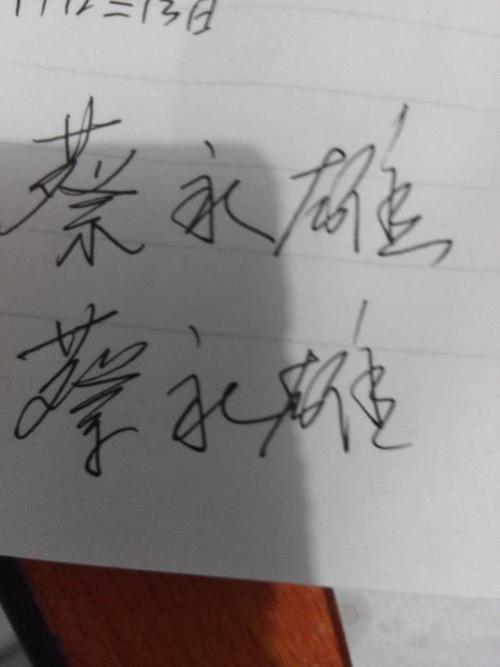 二13日
蔡永雄
蔡永雄